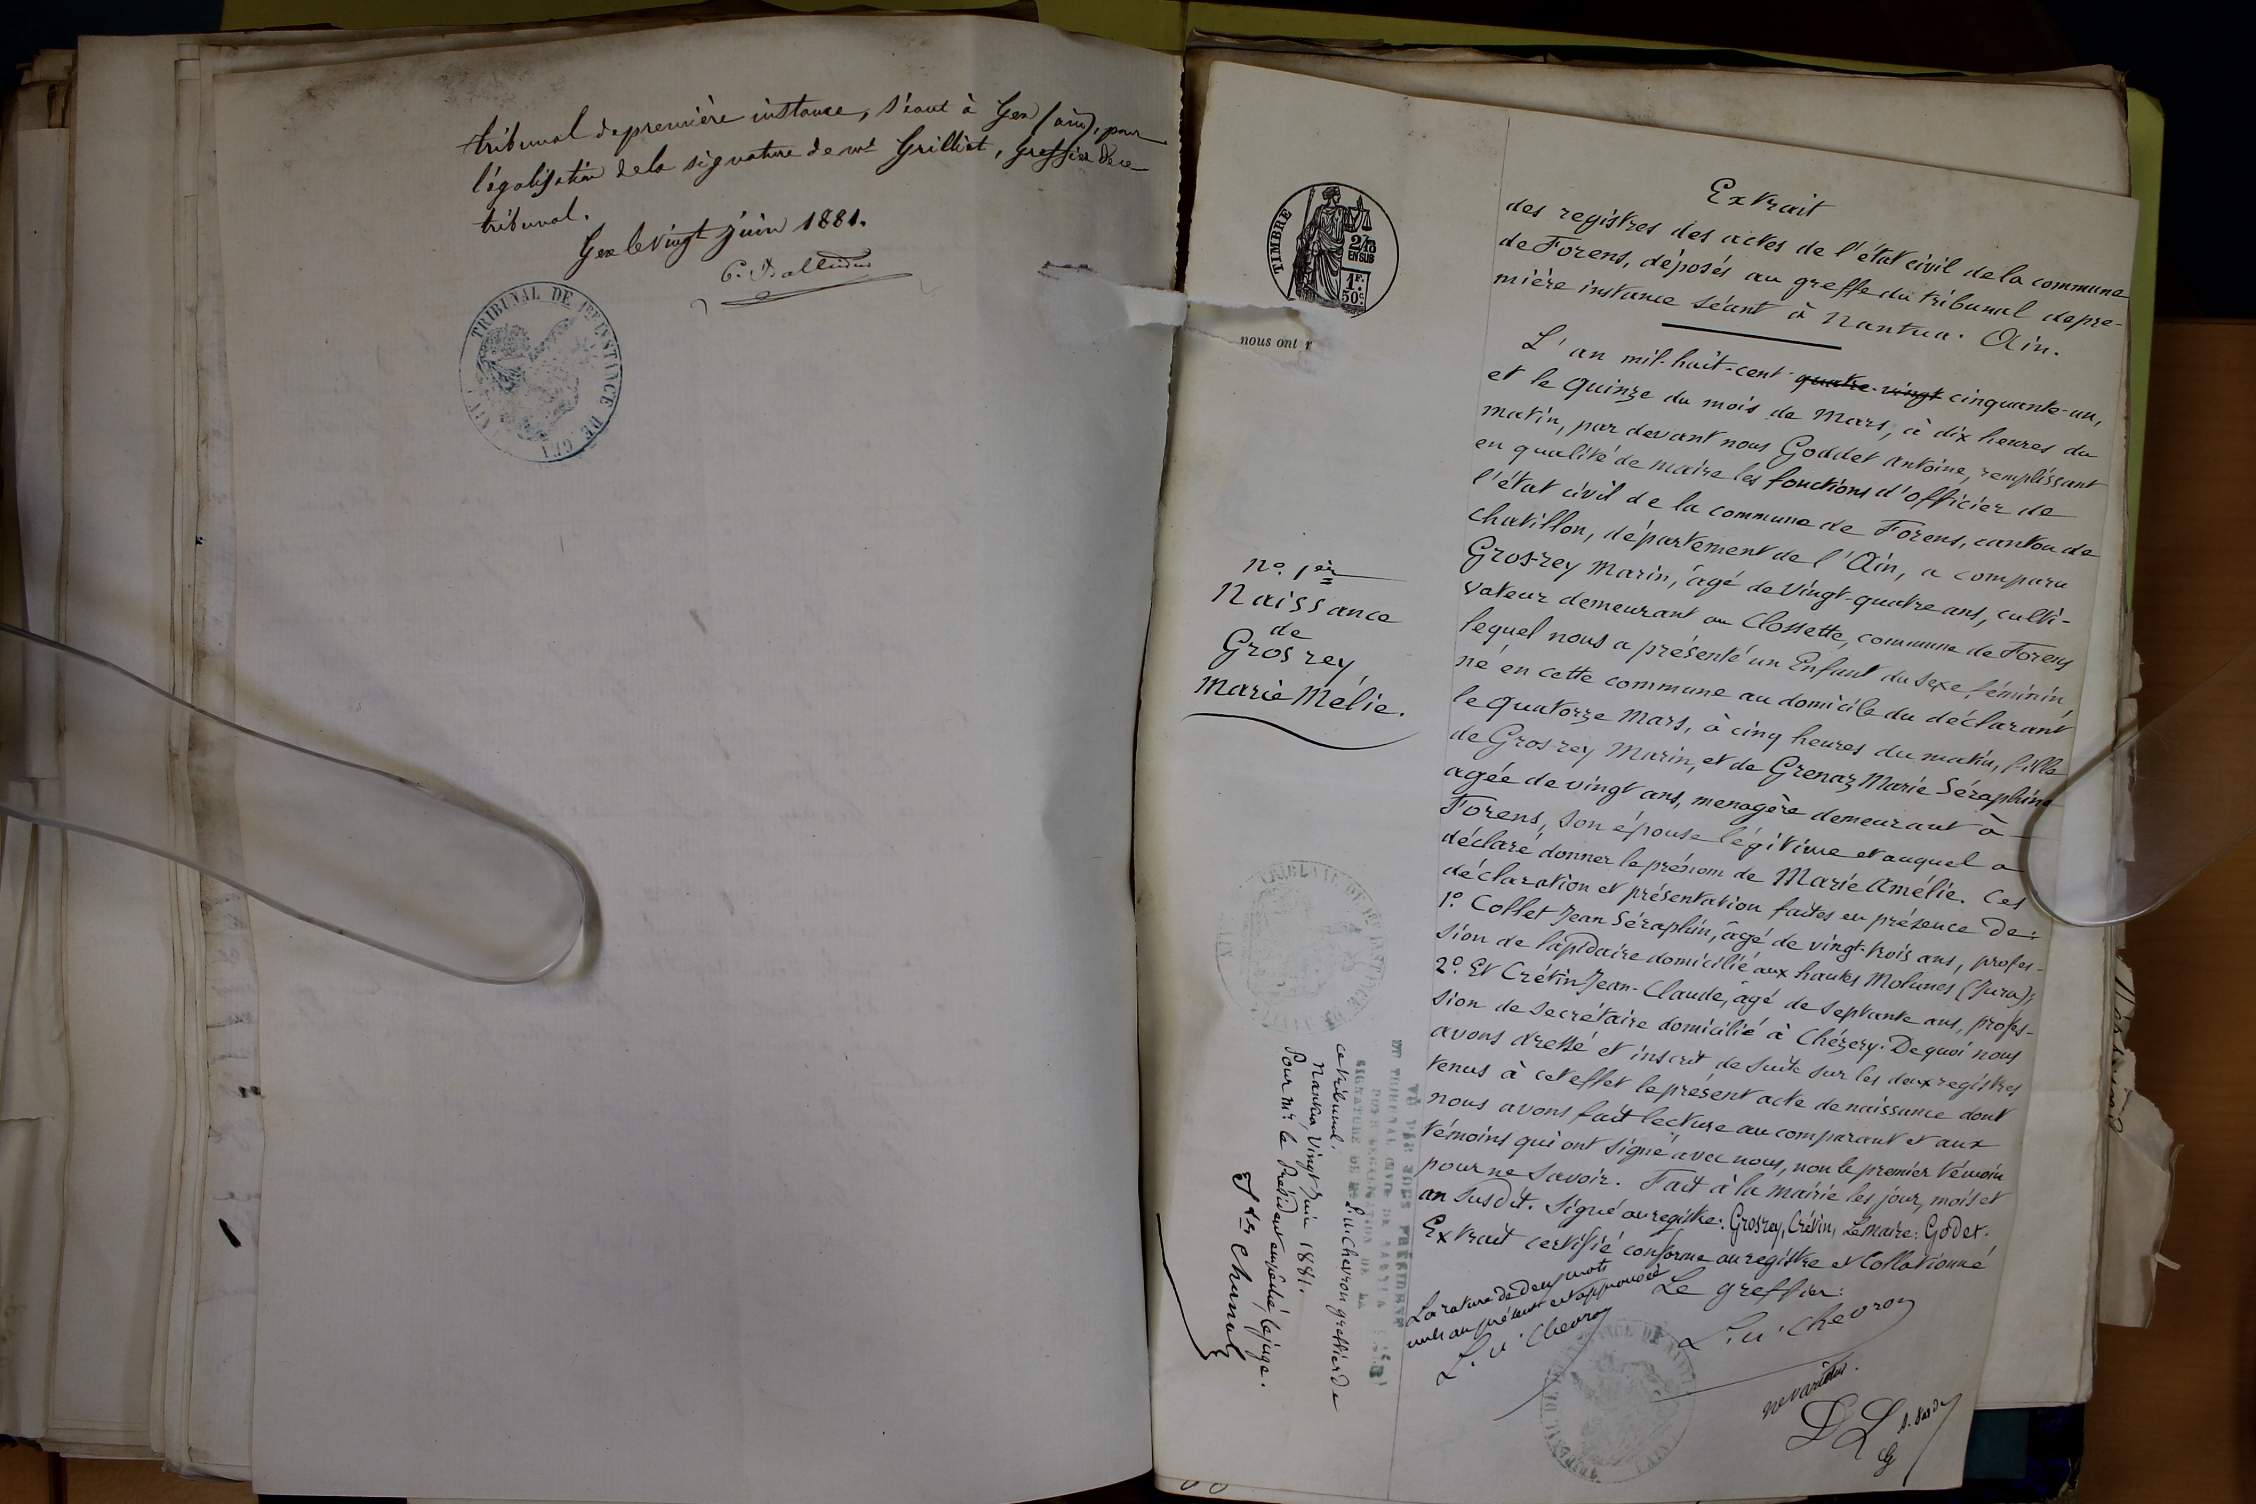 tribunal de première instance, séant à Gex (ain), pour
légalisation de la signature de mr Grilliet, greffier de ce
tribunal.
Gex le vingt juin 1881.
TRIBUNAL DE 1ERE INSTANCE DE GEX
TIMBRE
2/10
EN SUS
1F.
50c.
nous ont
Extrait
des registres des actes de l'état civil de la commune
de Forens, déposés au greffe du tribunal de pre-
mière instance séant à Nantua. Ain.
L'an mil-huit-cent quatre-vingt cinquante-un,
et le quinze du mois de Mars, à dix heures du
matin, par devant nous Goddet Antoine, remplissant
en qualité de maire les fonctions d'officier de
l'état civil de la commune de Forens, canton de
Chatillon, département de l'Ain, a comparu
Grosrey Marin, âgé de vingt-quatre ans, culti-
vateur demeurant au Clossette, commune de Forens
lequel nous a présenté un Enfant du sexe féminin,
né en cette commune au domicile du déclarant
le quatorze Mars, à cinq heures du matin, fille
de Grosrey Marin, et de Grenaz Marie Séraphine
agée de vingt ans, menagère demeurant à
Forens, son épouse légitime et auquel a
déclaré donner le prénom de Marie Amélie. Ces
déclaration et présentation faites en présence de:
1o. Collet Jean Séraphin, âgé de vingt-trois ans, profes-
sion de lapidaire domicilié aux hautes Molunes (Jura);
2o. Et Crétin Jean-Claude, âgé de septante ans, profes-
sion de secrétaire domicilié à Chézery. De quoi nous
avons dressé et inscrit de suite sur les deux registres
tenus à cet effet le présent acte de naissance dont
nous avons fait lecture au comparant et aux
témoins qui ont signé avec nous, non le premier témoin
pour ne savoir. Fait à la Mairie les jour, mois et
an susdit. Signé au registre: Grosrey, Crétin, Le Maire: Godet.
Extrait certifié conforme au registre et Collationné
Le greffier:
La rature de deux mots
nuls au présent est approuvée
No. 1er
Naissance
de
Grosrey
Marie Mélie.
VU PAR NOUS PRÉSIDENT
DU TRIBUNAL CIVIL DE NANTUA
POUR LÉGALISATION DE LA
SIGNATURE DE Mr L. u. Chevron greffier de
ce tribunal.
Nantua, vingt Juin 1881.
Pour mr. le Président empêché, le juge.
ne varietur.